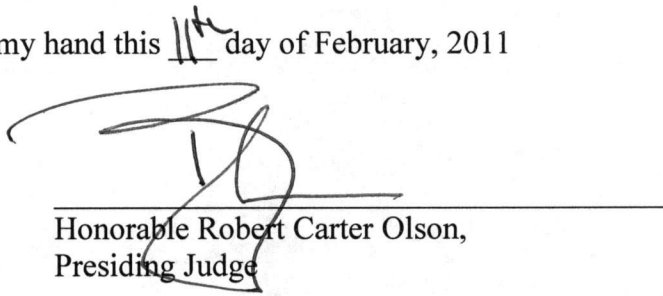 my hand this 11th day of February, 2011
Honorable Robert Carter Olson,
Presiding Judge